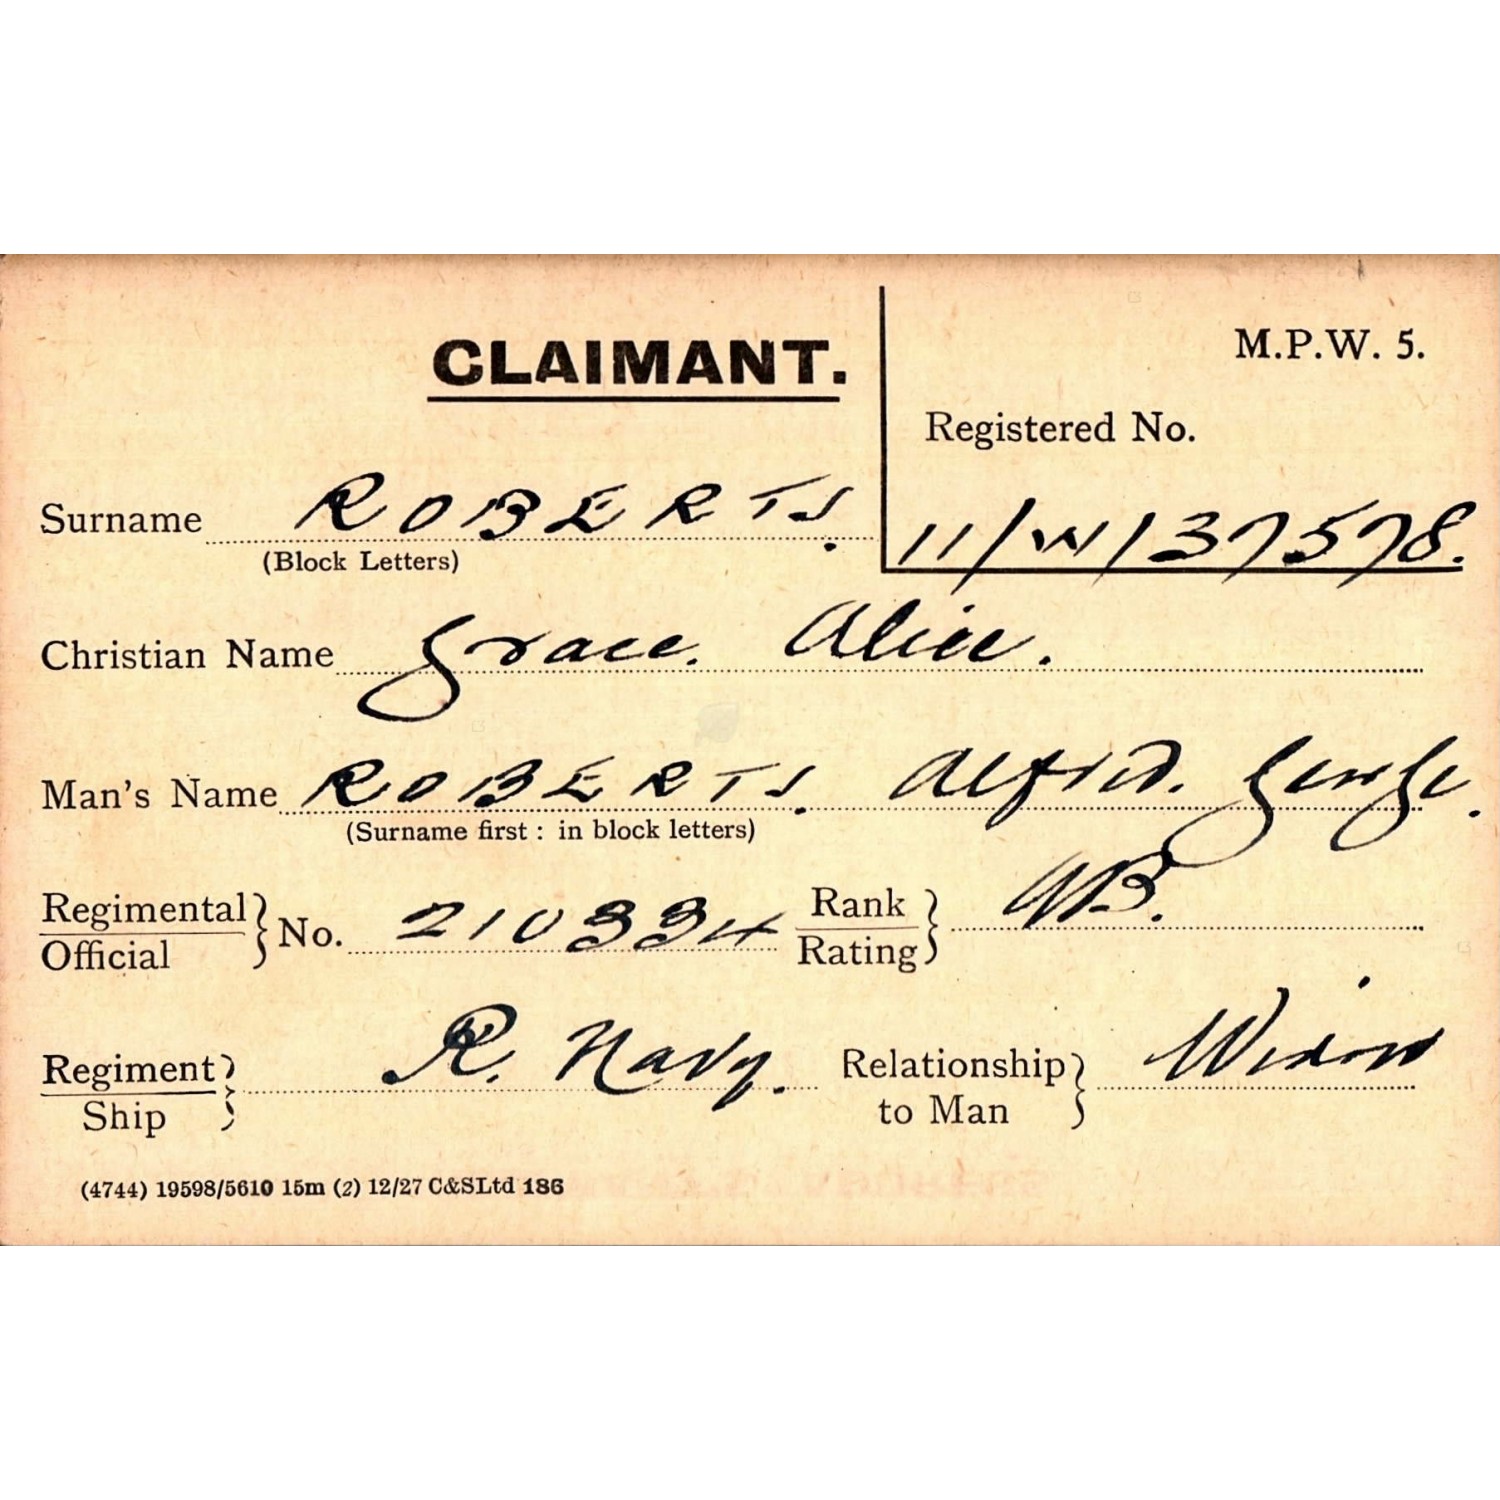 CLAIMANT.
M.P.W. 5.
Registered No.
11/W/37578.
Surname ROBERTS.
(Block Letters)
Christian Name Grace. Alice.
Man's Name ROBERTS. Alfred. George.
(Surname first : in block letters)
Regimental
Official } No. 210334
Rank
Rating } AB.
Regiment
Ship } R. Navy.
Relationship
to Man } Widow
(4744) 19598/5610 15m (2) 12/27 C&SLtd 186